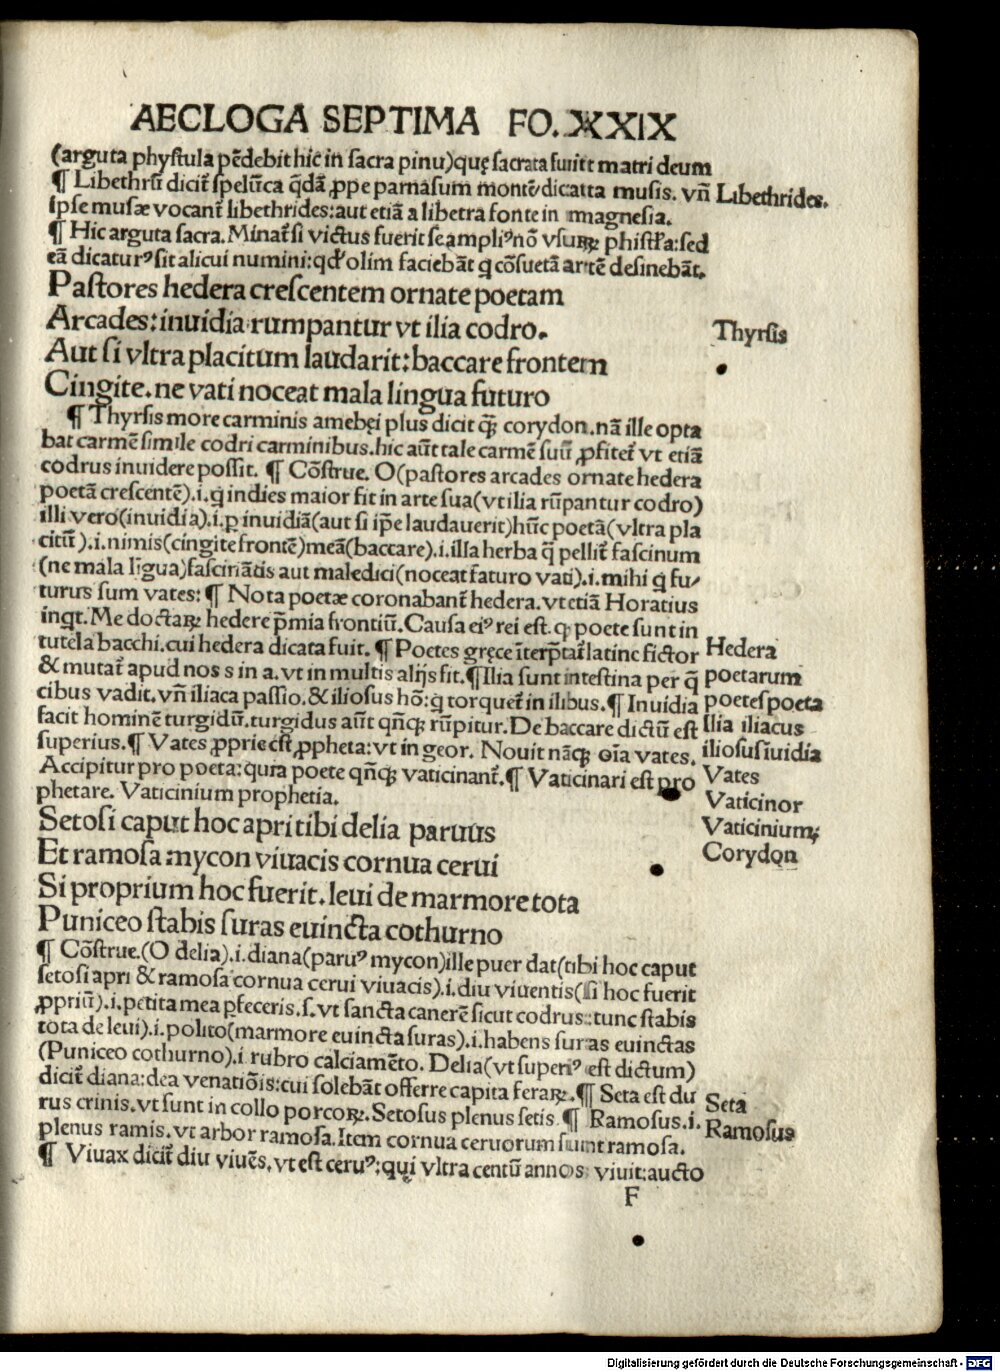 AECLOGA SEPTIMA FO. XXIX
(arguta phystula pēdebit hic in sacra pinu)quę sacrata fuitt matri deum
¶ Libethrū dicit̄ spelūca q̄dā ꝓpe parnasum montē/dicatta musis. vn̄ Libethrides.
ipse musæ vocant̄ libethrides:aut etiā a libetra fonte in magnesia.
¶ Hic arguta sacra. Minat̄ si victus fuerit se ampliꝰ nō vsuꝝ phistl̄a:sed
eā dicaturꝰ sit alicui numini:qd̄ olim faciebāt q̄ cōsuetā artē desinebāt.
Pastores hedera crescentem ornate poetam
Arcades:inuidia rumpantur vt ilia codro. Thyrsis
Aut si vltra placitum laudarit:baccare frontem
Cingite.ne vati noceat mala lingua futuro
¶ Thyrsis more carminis amebęi plus dicit q̄ꝫ corydon.nā ille opta
bat carmē simile codri carminibus.hic aūt tale carmē suū ꝓfitet̄ vt etiā
codrus inuidere possit. ¶ Cōstrue. O(pastores arcades ornate hedera
poetā crescentē).i.q̄ indies maior fit in arte sua(vt ilia rūpantur codro)
illi vero(inuidia).i.ꝑ inuidiā(aut si ip̄e laudauerit)hūc poetā(vltra pla
citū).i.nimis(cingite frontē)meā(baccare).i.illa herba q̄ pellit̄ fascinum
(ne mala līgua)fascinātis aut maledici(noceat futuro vati).i.mihi q̄ fu⸗
turus sum vates: ¶ Nota poetæ coronabant̄ hedera.vt etiā Horatius
inqt. Me doctaꝝ hedere p̄mia frontiū. Causa eiꝰ rei est.qꝫ poete sunt in
tutela bacchi.cui hedera dicata fuit. ¶ Poetes gręce īterp̄tat̄ latine fictor Hedera
& mutat̄ apud nos s in a.vt in multis alijs fit.¶ Ilia sunt intestina per q̄ poetarum
cibus vadit.vn̄ iliaca passio.& iliosus hō:q̄ torquet̄ in ilibus.¶ Inuidia poetes poeta
facit hominē turgidū.turgidus aūt qn̄qꝫ rūpitur. De baccare dictū est Ilia iliacus
superius.¶ Vates ꝓprie est ꝓpheta:vt in geor. Nouit nāqꝫ oīa vates. iliosus īuidia
Accipitur pro poeta:quia poete qn̄qꝫ vaticinant̄.¶ Vaticinari est pro Vates
phetare. Vaticinium prophetia. Vaticinor
Setosi caput hoc apri tibi delia paruus Vaticinium;
Et ramosa:mycon viuacis cornua cerui Corydon
Si proprium hoc fuerit.leui de marmore tota
Puniceo stabis suras euincta cothurno
¶ Cōstrue.(O delia).i.diana(paruꝰ mycon)ille puer dat(tibi hoc caput
setosi apri & ramosa cornua cerui viuacis).i.diu viuentis(si hoc fuerit
ꝓpriū).i.petita mea ꝑfeceris.s.vt sancta canerē sicut codrus:tunc stabis
tota de leui).i.polito(marmore euincta suras).i.habens suras euinctas
(Puniceo cothurno).i rubro calciamēto. Delia(vt superiꝰ est dictum)
dicit̄ diana:dea venatiōis:cui solebāt offerre capita feraꝝ.¶ Seta est du
rus crinis.vt sunt in collo porcoꝝ. Setosus plenus setis ¶ Ramosus.i. Seta
plenus ramis.vt arbor ramosa. Item cornua ceruorum sunt ramosa. Ramosus
¶ Viuax dicit̄ diu viuēs.vt est ceruꝰ:qui vltra centū annos viuit:aucto
F
Digitalisierung gefördert durch die Deutsche Forschungsgemeinschaft - DFG